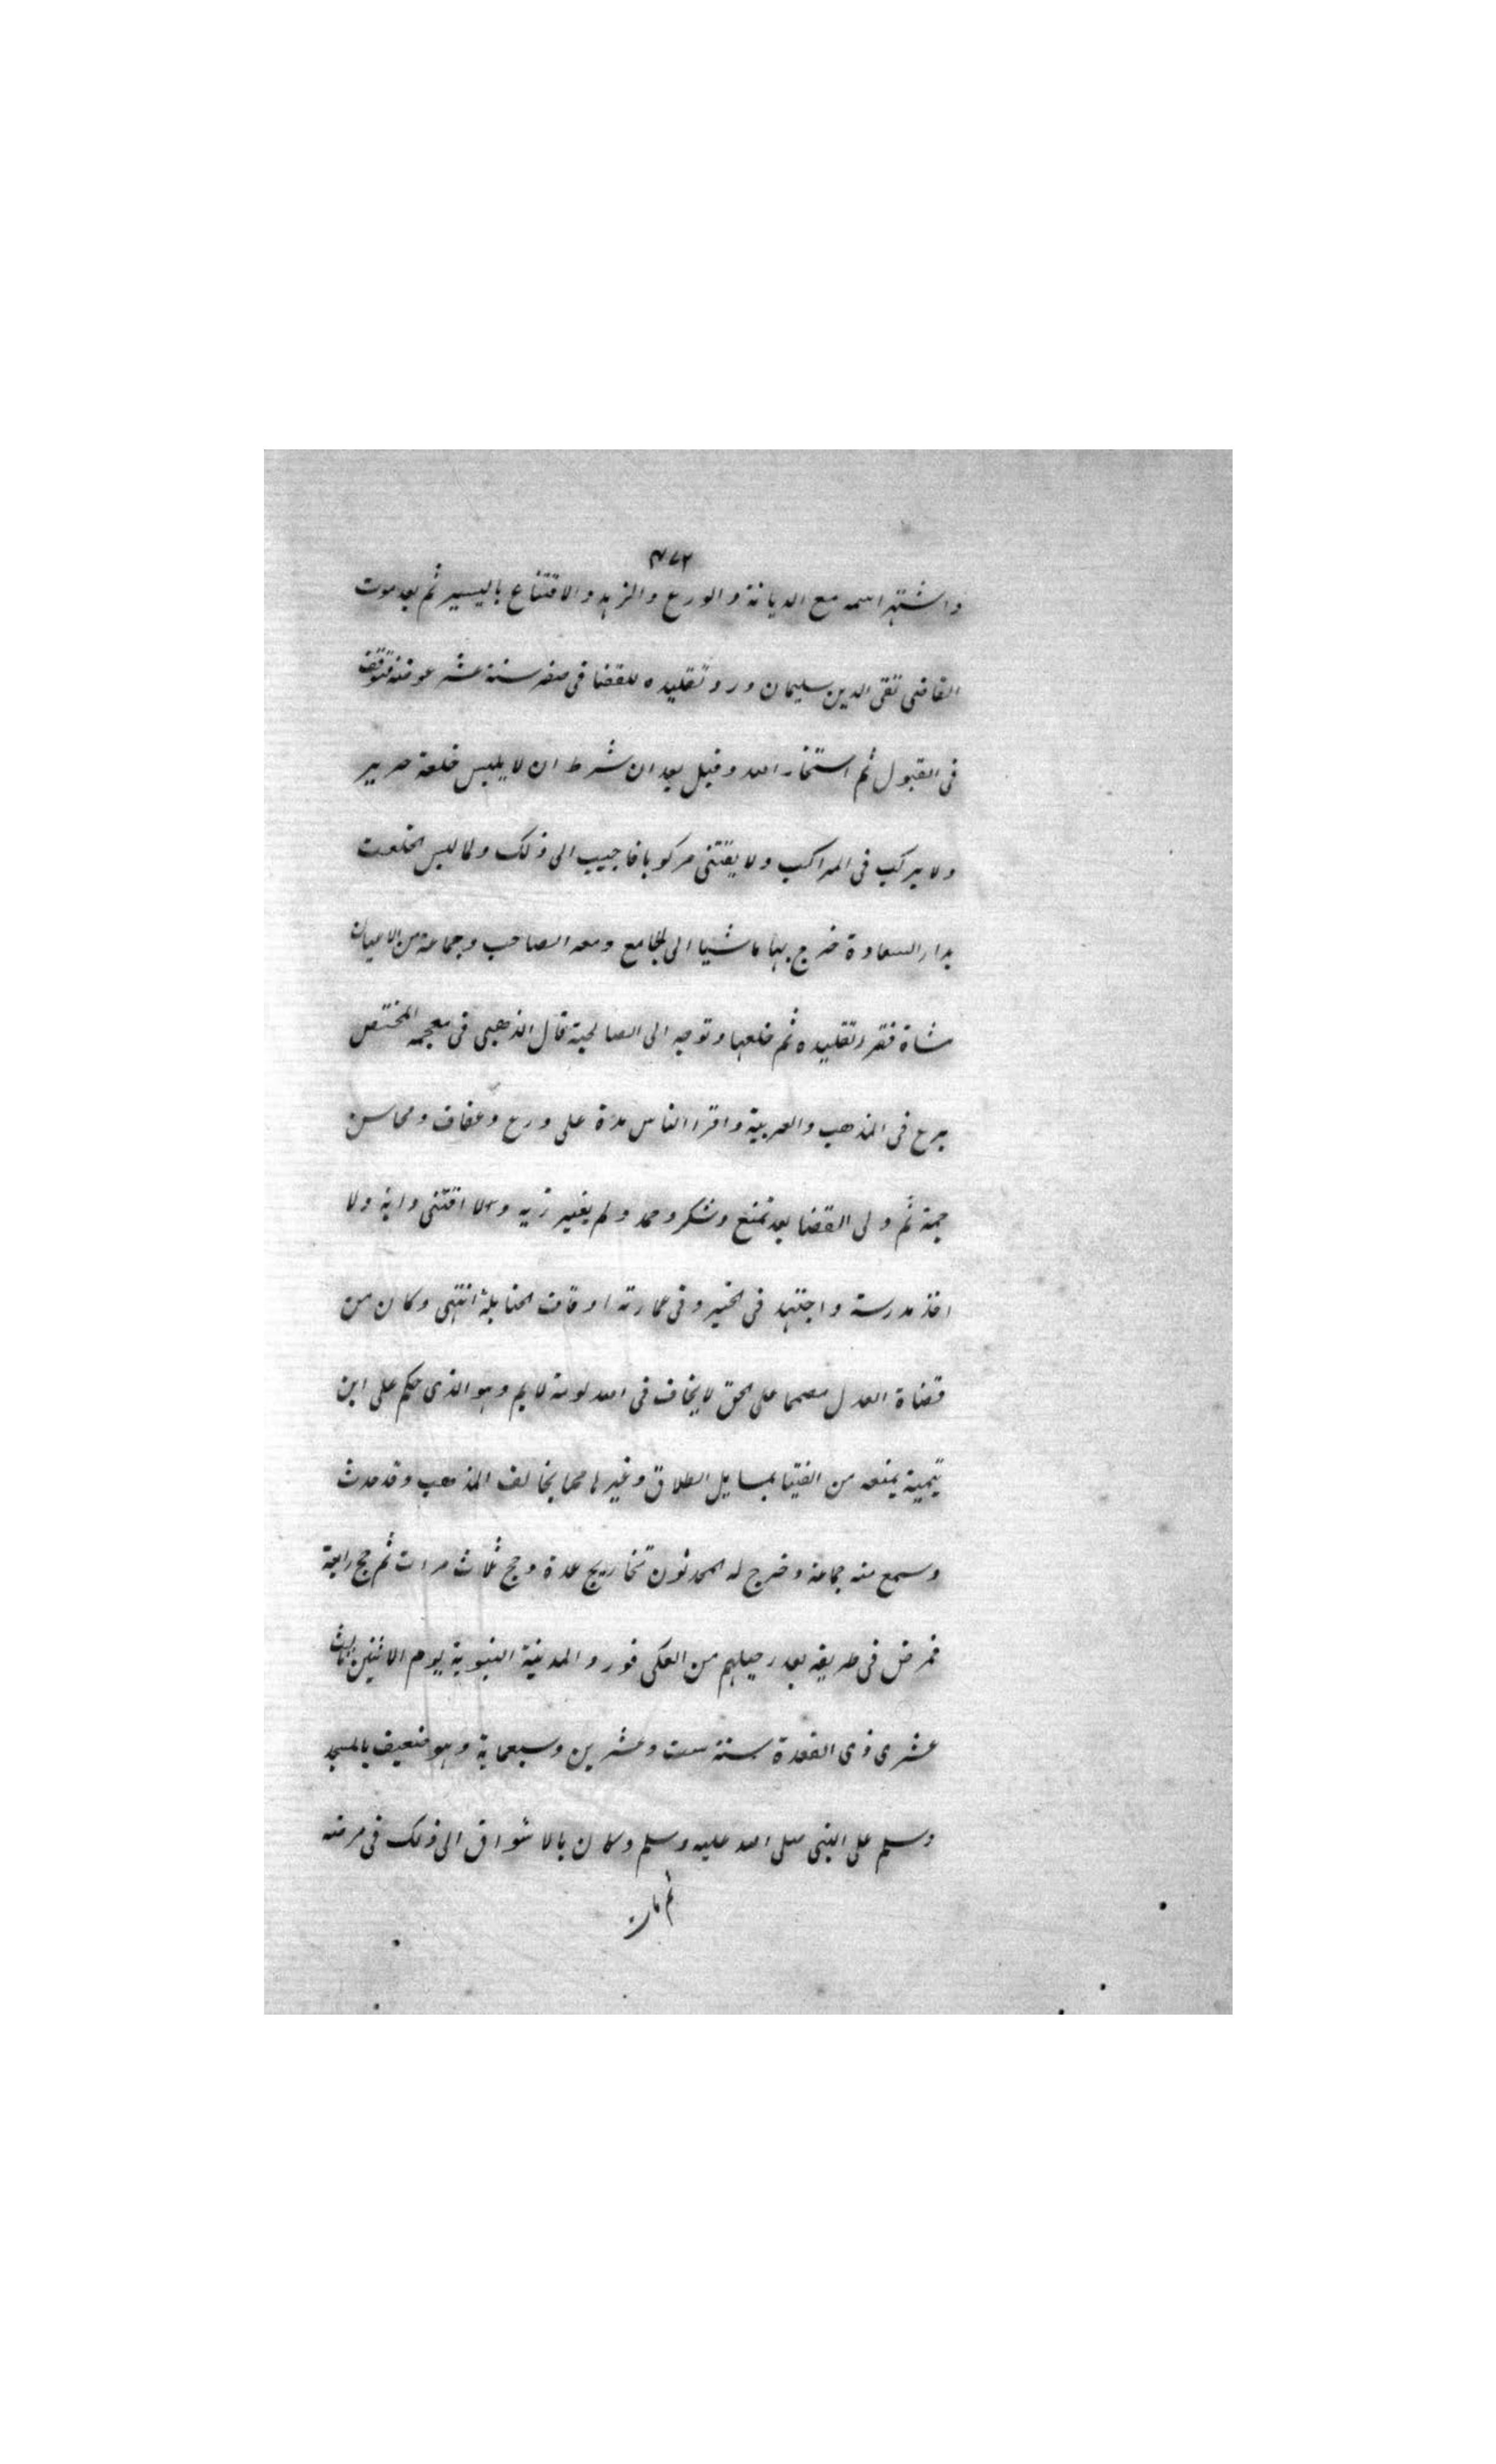 ٤٧٢
واشتهر اسمه مع الديانة والورع والزهد والاقتناع باليسير ثم بعد موت
القاضى تقى الدين سليمان ورد تقليده للقضا فى صفر سنة عشر عوضه فتوقف
فى القبول ثم استخار الله وقبل بعد ان شرط ان لا يلبس خلعة حرير
ولا يركب فى المراكب ولا يقتنى مركوبا فاجيب الى ذلك ولما لبس الخلعة
بدار السعادة خرج بها ماشيا الى الجامع ومعه الصاحب وجماعة من الاعيان
مشاة فقرر تقليده ثم خلعها وتوجه الى الصالحية قال الذهبى فى معجمه المختص
برع فى المذهب والعربية واقرا الناس مدة على ورع وعفاف ومحاسن
جمة ثم ولى القضا بعد تمنع وشكر وحمد ولم يغير زيه ولا اقتنى دابة ولا
اخذ مدرسة واجتهد فى الخير وفى عمارته اوقاف الحنابلة انتهى وكان من
قضاة العدل مصمما على الحق لا يخاف فى الله لومة لايم وهو الذى حكم على ابن
تيمية بمنعه من الفتيا بمسايل الطلاق وغيرها مما يخالف المذهب وقد حدث
وسمع منه جماعة وخرج له المحدثون تخاريج عدة وحج ثلاث مرات ثم حج رابعة
فمرض فى طريقه بعد رحيلهم من العلى فورد المدينة النبوية يوم الاثنين ثالث
عشرى ذى القعدة سنة ست وعشرين وسبعماية وهو ضعيف بالمسجد
وسلم على النبى صلى الله عليه وسلم وكان بالاشواق الى ذلك فى مرضه
ثم مات